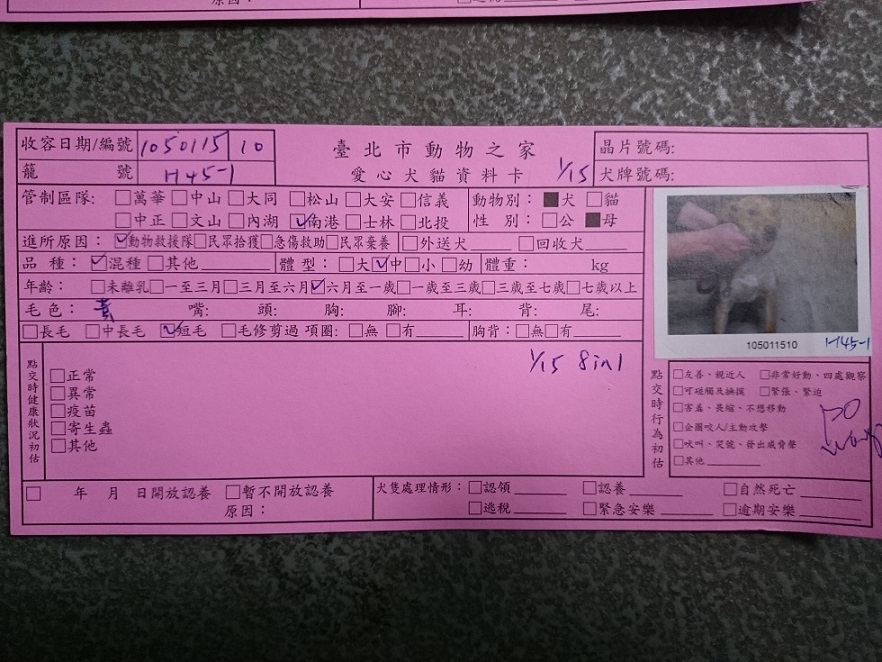 收容日期/編號 1050115 10
籠號 H45-1
臺北市動物之家
愛心犬貓資料卡 1/15
晶片號碼:
犬牌號碼:
管制區隊: □萬華 □中山 □大同 □松山 □大安 □信義 動物別: ■犬 □貓
□中正 □文山 □內湖 ☑南港 □士林 □北投 性別: □公 ■母
進所原因: ☑動物救援隊 □民眾拾獲 □急傷救助 □民眾棄養 □外送犬 □回收犬
品種: ☑混種 □其他 體型: □大 ☑中 □小 □幼 體重: kg
年齡: □未離乳 □一至三月 □三月至六月 ☑六月至一歲 □一歲至三歲 □三歲至七歲 □七歲以上
毛色: 黃 嘴: 頭: 胸: 腳: 耳: 背: 尾:
□長毛 □中長毛 ☑短毛 □毛修剪過 項圈: □無 □有 胸背: □無 □有
105011510 H45-1
點交時健康狀況初估
1/15 8in1
□正常
□異常
□疫苗
□寄生蟲
□其他
點交時行為初估
□友善、親近人 □非常好動、四處觀察
□可碰觸及撫摸 □緊張、緊迫
□害羞、畏縮、不想移動
□企圖咬人/主動攻擊
□吠叫、哭號、發出威脅聲
□其他
□ 年 月 日開放認養 □暫不開放認養
原因:
犬隻處理情形: □認領 □認養 □自然死亡
□逃脫 □緊急安樂 □逾期安樂